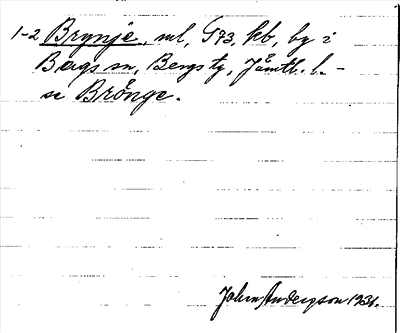 1-2 Brynje, ml, G93, kb, by i
Bergs sn, Bergs tg, Jämtl. l. –
se Brånge.
John Andersson 1931.